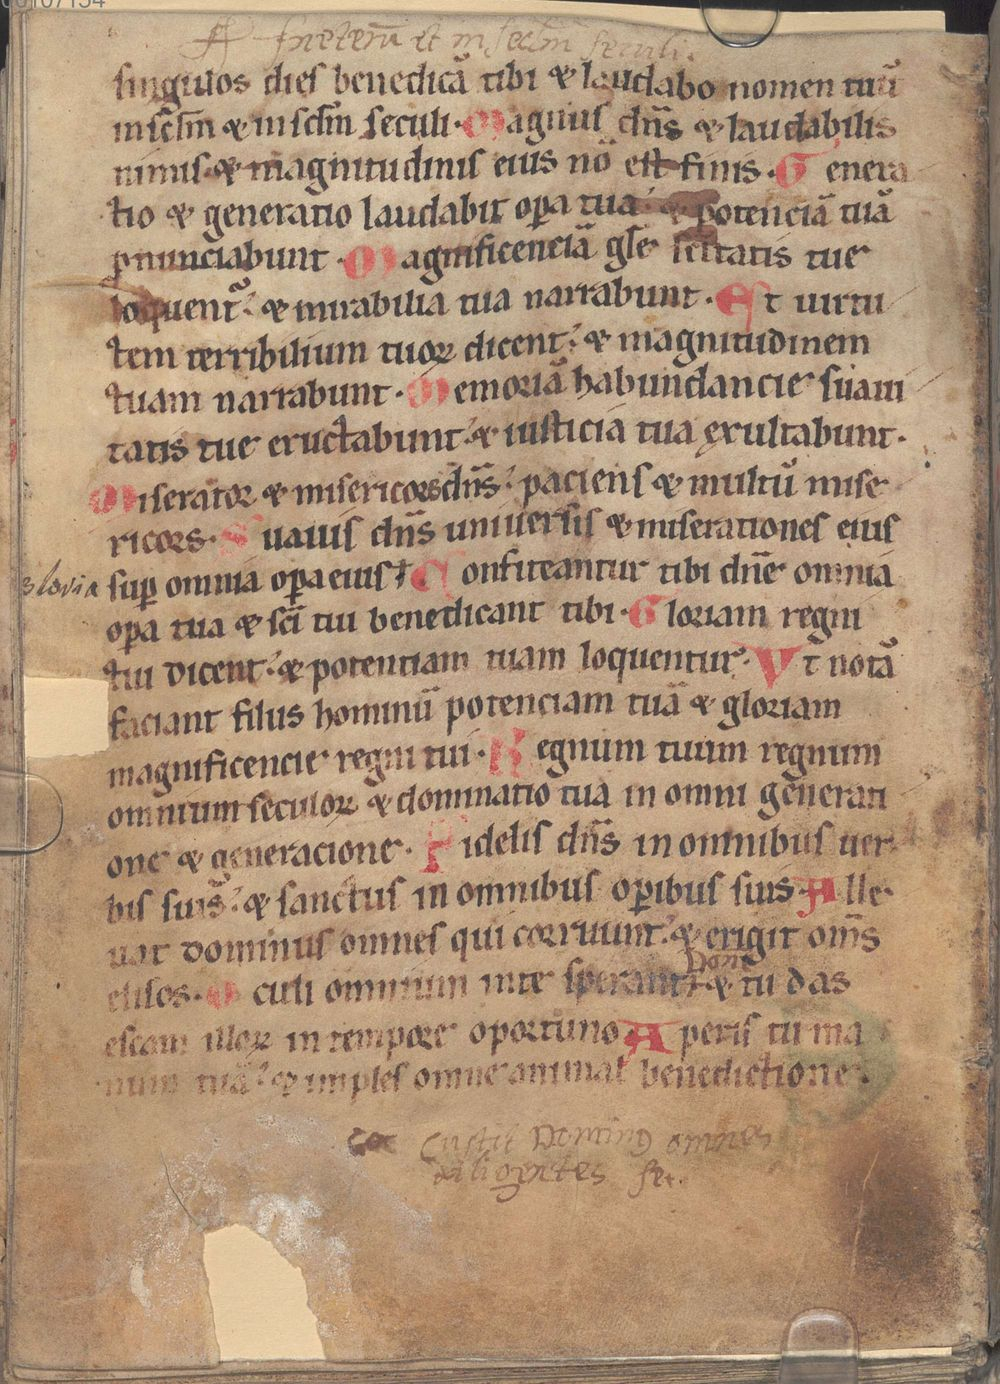 00107134
in eternũ et in seclm̃ seculi.
singulos dies benedicã tibi & laudabo nomen tuũ
in sclm̃ & in sclm̃ seculi. Magnus dñs & laudabilis
nimis & magnitudinis eius nõ est finis. Genera
tio & generatio laudabit opa tua & potenciã tuã
pnunciabunt. Magnificenciã gle sctitatis tue
loquent̃ & mirabilia tua narrabunt. Et uirtu
tem terribilium tuoꝝ dicent: & magnitudinem
tuam narrabunt. Memoriã habundancie suaui
tatis tue eructabunt: & iusticia tua exultabunt.
Miserator & misericors dñs: paciens & multũ mise
ricors. Suauis dñs uniuersis & miserationes eius
sup omnia opa eius† Confiteantur tibi dñe omnia
gloria
opa tua & sci tui benedicant tibi. Gloriam regni
tui dicent: & potentiam tuam loquentur. Vt notã
faciant filiis hominũ potenciam tuã & gloriam
magnificencie regni tui. Regnum tuum regnum
omnium seculoꝝ & dominatio tua in omni generati
one & generacione. Fidelis dñs in omnibus uer
bis suis: & sanctus in omnibus opibus suis. Alle
uat dominus omnes qui corruunt: & erigit om̃s
elisos. Oculi omnium in te sperant & tu das
Dom̃
escam illoꝝ in tempore oportuno. Aperis tu ma
num tuã: & imples omne animal benedictione.
Custit Doming omnes
diligentes se.